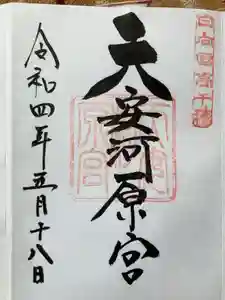 日向国高千穂
天安河原宮
令和四年五月十八日